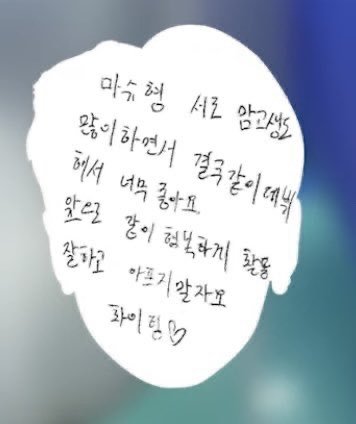 마슈형 서로 맘고생도
많이하면서 결국같이 데뷔
해서 너무 좋아요
앞으로 같이 행복하게 활동
잘하고 아프지말자요
화이팅♡